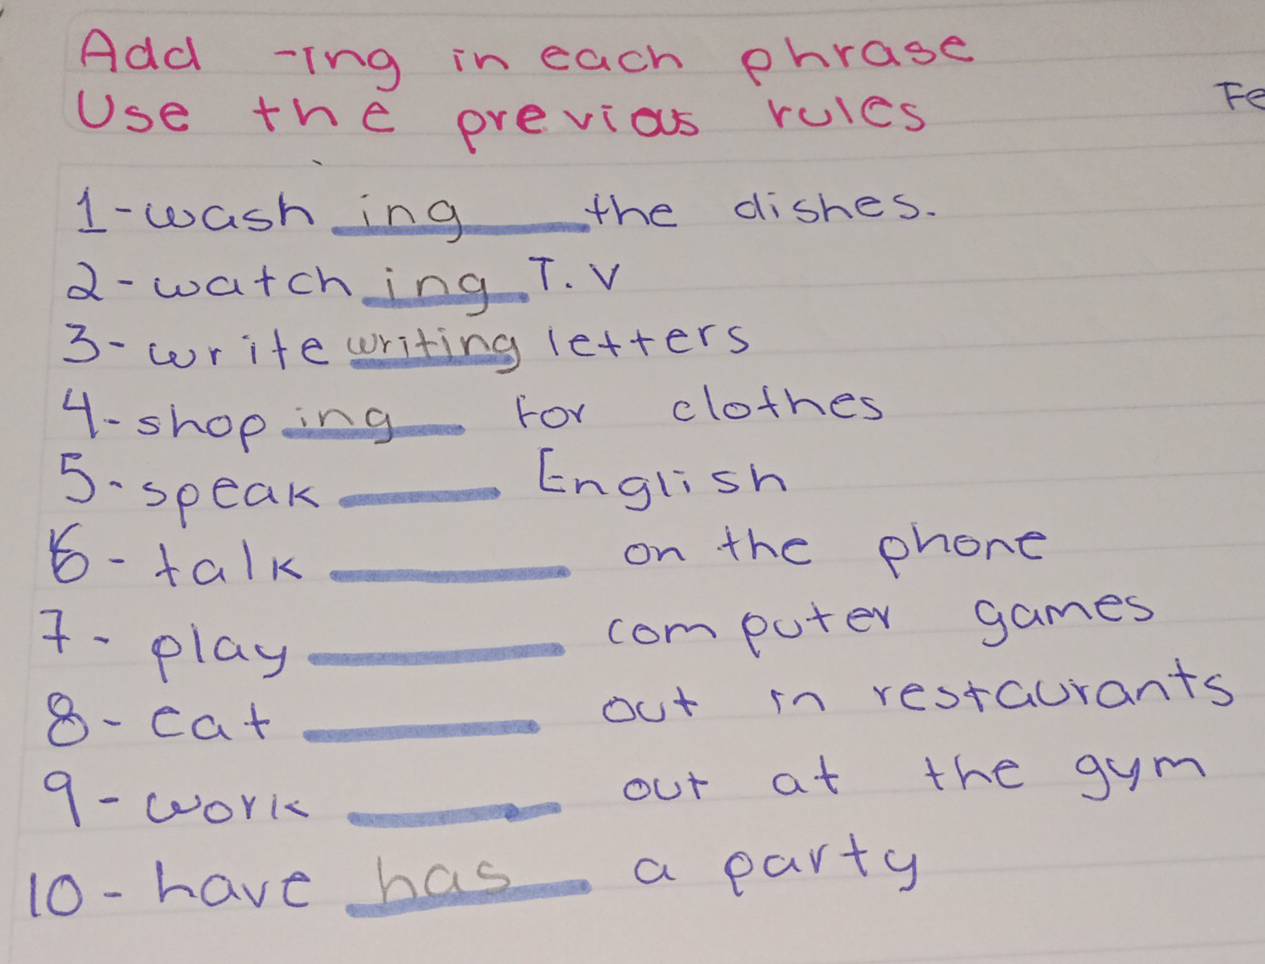 Add -ing in each phrase
Use the previous rules
Fe
1-wash ing the dishes.
2-watch ing T.V
3-write writing letters
4-shop ing for clothes
5-speak English
6-talk on the phone
7-play computer games
8-eat out in restaurants
9-work out at the gym
10-have has a party